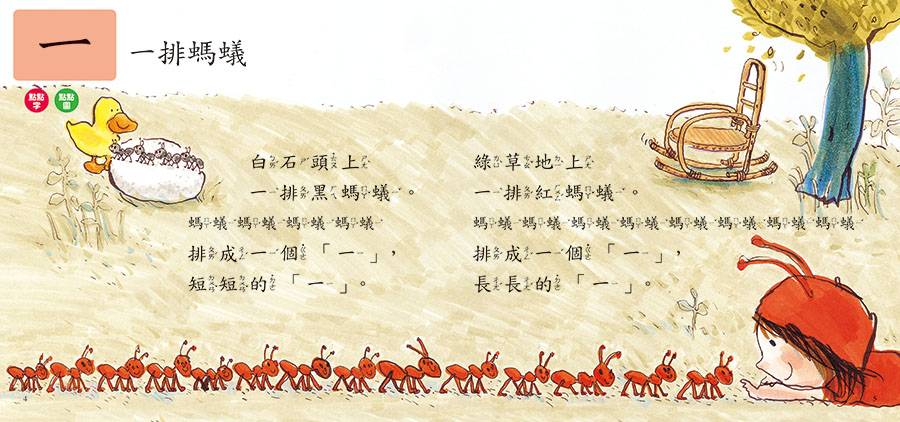 一
一排螞蟻
點點字
點點圖
白石頭上
一排黑螞蟻。
螞蟻螞蟻螞蟻螞蟻
排成一個「一」，
短短的「一」。
綠草地上
一排紅螞蟻。
螞蟻螞蟻螞蟻螞蟻螞蟻螞蟻螞蟻螞蟻
排成一個「一」，
長長的「一」。
4
5